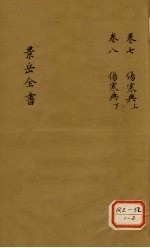 卷七　傷寒典上
卷八　傷寒典下
景岳全書